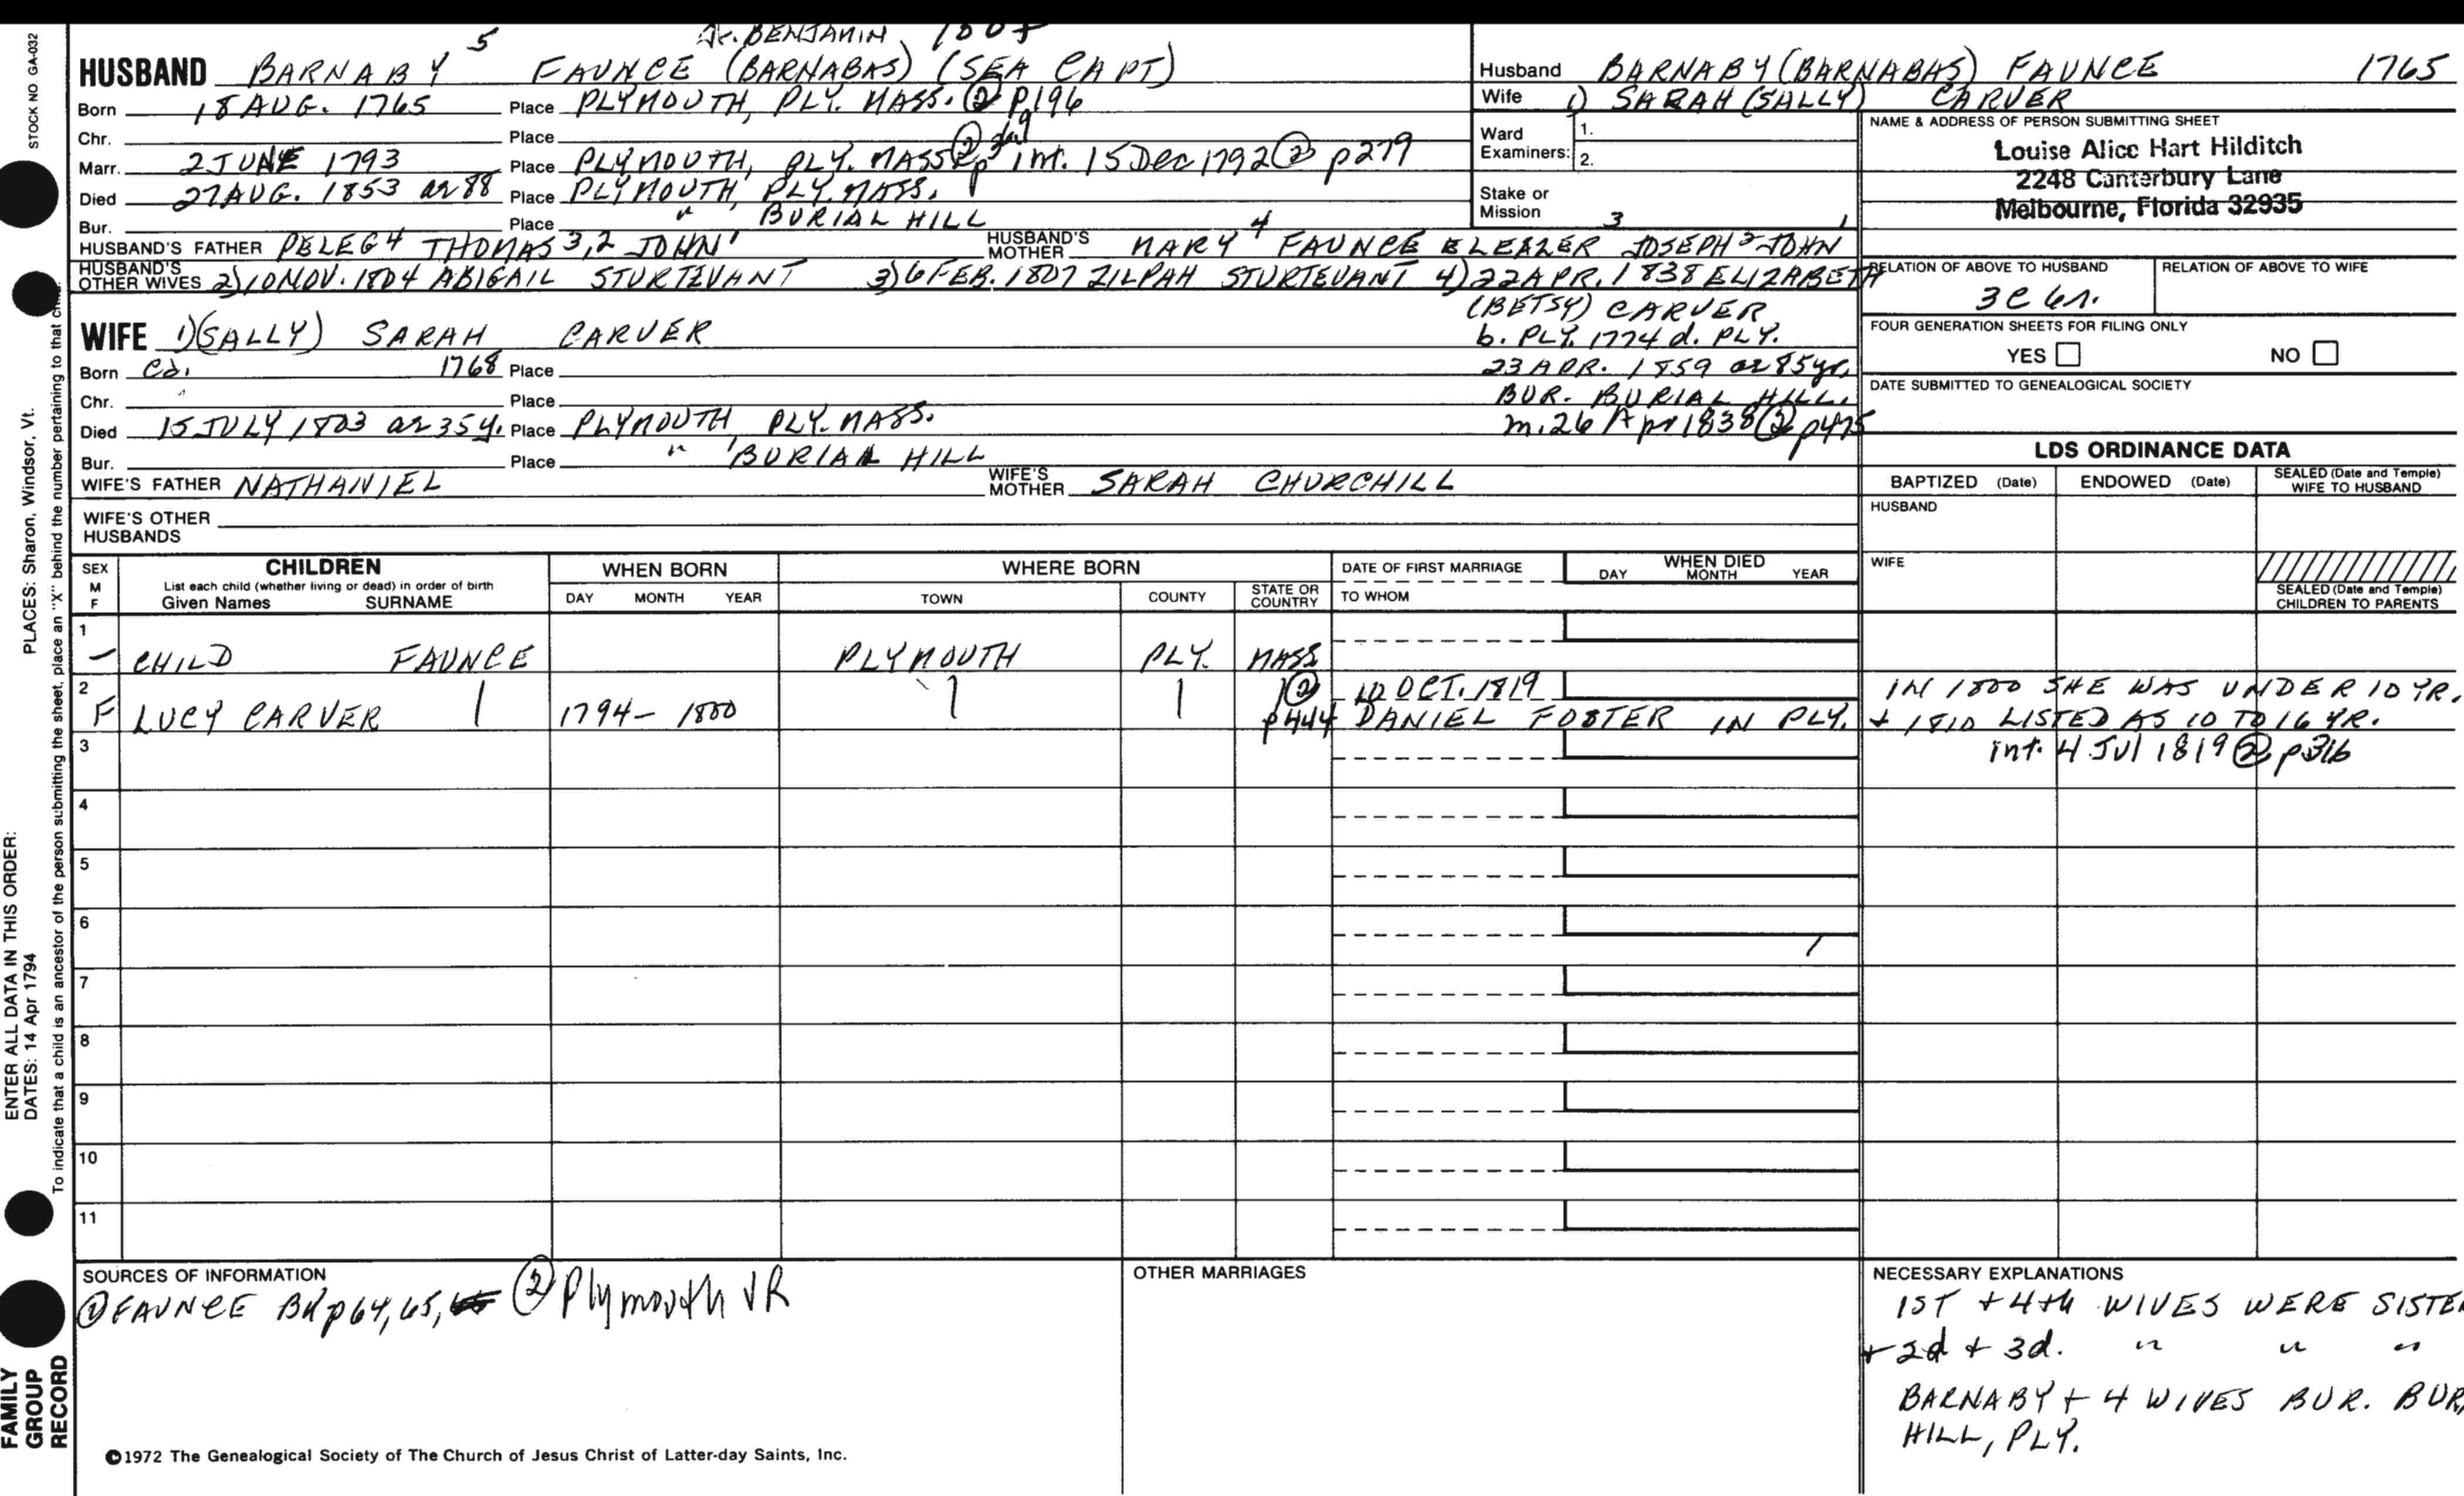 STOCK NO GA-032
BENJAMIN
HUSBAND BARNABY 5 FAUNCE (BARNABAS) (SEA CAPT)
Born 18 AUG. 1765 Place PLYMOUTH, PLY. MASS. ② p196
Chr. Place
Marr. 2 JUNE 1793 Place PLYMOUTH, PLY. MASS ② p int. 15 Dec 1792 ② p279
Died 27 AUG. 1853 ae 88 Place PLYMOUTH, PLY. MASS.
Bur. Place " BURIAL HILL
HUSBAND'S FATHER PELEG 4 THOMAS 3,2 JOHN 1 HUSBAND'S MOTHER MARY 4 FAUNCE ELEAZER 3 JOSEPH 2 JOHN 1
HUSBAND'S OTHER WIVES 2) 10 NOV. 1804 ABIGAIL STURTEVANT 3) 6 FEB. 1807 ZILPAH STURTEVANT 4) 22 APR. 1838 ELIZABETH
(BETSY) CARVER
b. PLY. 1774 d. PLY.
23 APR. 1859 ae 85 yr.
BUR. BURIAL HILL.
m. 26 Apr 1838 ② p475
WIFE 1) (SALLY) SARAH CARVER
Born Ca. 1768 Place
Chr. Place
Died 15 JULY 1803 ae 35 y. Place PLYMOUTH PLY. MASS.
Bur. Place " BURIAL HILL
WIFE'S FATHER NATHANIEL WIFE'S MOTHER SARAH CHURCHILL
WIFE'S OTHER
HUSBANDS
Husband BARNABY (BARNABAS) FAUNCE 1765
Wife 1) SARAH (SALLY) CARVER
Ward Examiners: 1. 2.
Stake or Mission
NAME & ADDRESS OF PERSON SUBMITTING SHEET
Louise Alice Hart Hilditch
2248 Canterbury Lane
Melbourne, Florida 32935
RELATION OF ABOVE TO HUSBAND RELATION OF ABOVE TO WIFE
3C 6r.
FOUR GENERATION SHEETS FOR FILING ONLY
YES NO
DATE SUBMITTED TO GENEALOGICAL SOCIETY
LDS ORDINANCE DATA
BAPTIZED (Date) ENDOWED (Date) SEALED (Date and Temple) WIFE TO HUSBAND
HUSBAND
WIFE
SEALED (Date and Temple) CHILDREN TO PARENTS
SEX M F CHILDREN WHEN BORN WHERE BORN DATE OF FIRST MARRIAGE WHEN DIED
List each child (whether living or dead) in order of birth
Given Names SURNAME DAY MONTH YEAR TOWN COUNTY STATE OR COUNTRY TO WHOM DAY MONTH YEAR
1 – CHILD FAUNCE PLYMOUTH PLY. MASS
2 ② 10 OCT. 1819 IN 1800 SHE WAS UNDER 10 YR.
F LUCY CARVER 1794 – 1800 p444 DANIEL FOSTER IN PLY. + 1810 LISTED AS 10 TO 16 YR.
3 int. 4 Jul 1819 ② p316
4
5
6
7
8
9
10
11
SOURCES OF INFORMATION
① FAUNCE BK p64, 65, ② Plymouth VR
OTHER MARRIAGES
NECESSARY EXPLANATIONS
1ST + 4th WIVES WERE SISTE
+ 2d + 3d. " " "
BARNABY + 4 WIVES BUR. BUR.
HILL, PLY.
©1972 The Genealogical Society of The Church of Jesus Christ of Latter-day Saints, Inc.
ENTER ALL DATA IN THIS ORDER:
DATES: 14 Apr 1794 PLACES: Sharon, Windsor, Vt.
To indicate that a child is an ancestor of the person submitting the sheet, place an "X" behind the number pertaining to that child.
FAMILY
GROUP
RECORD